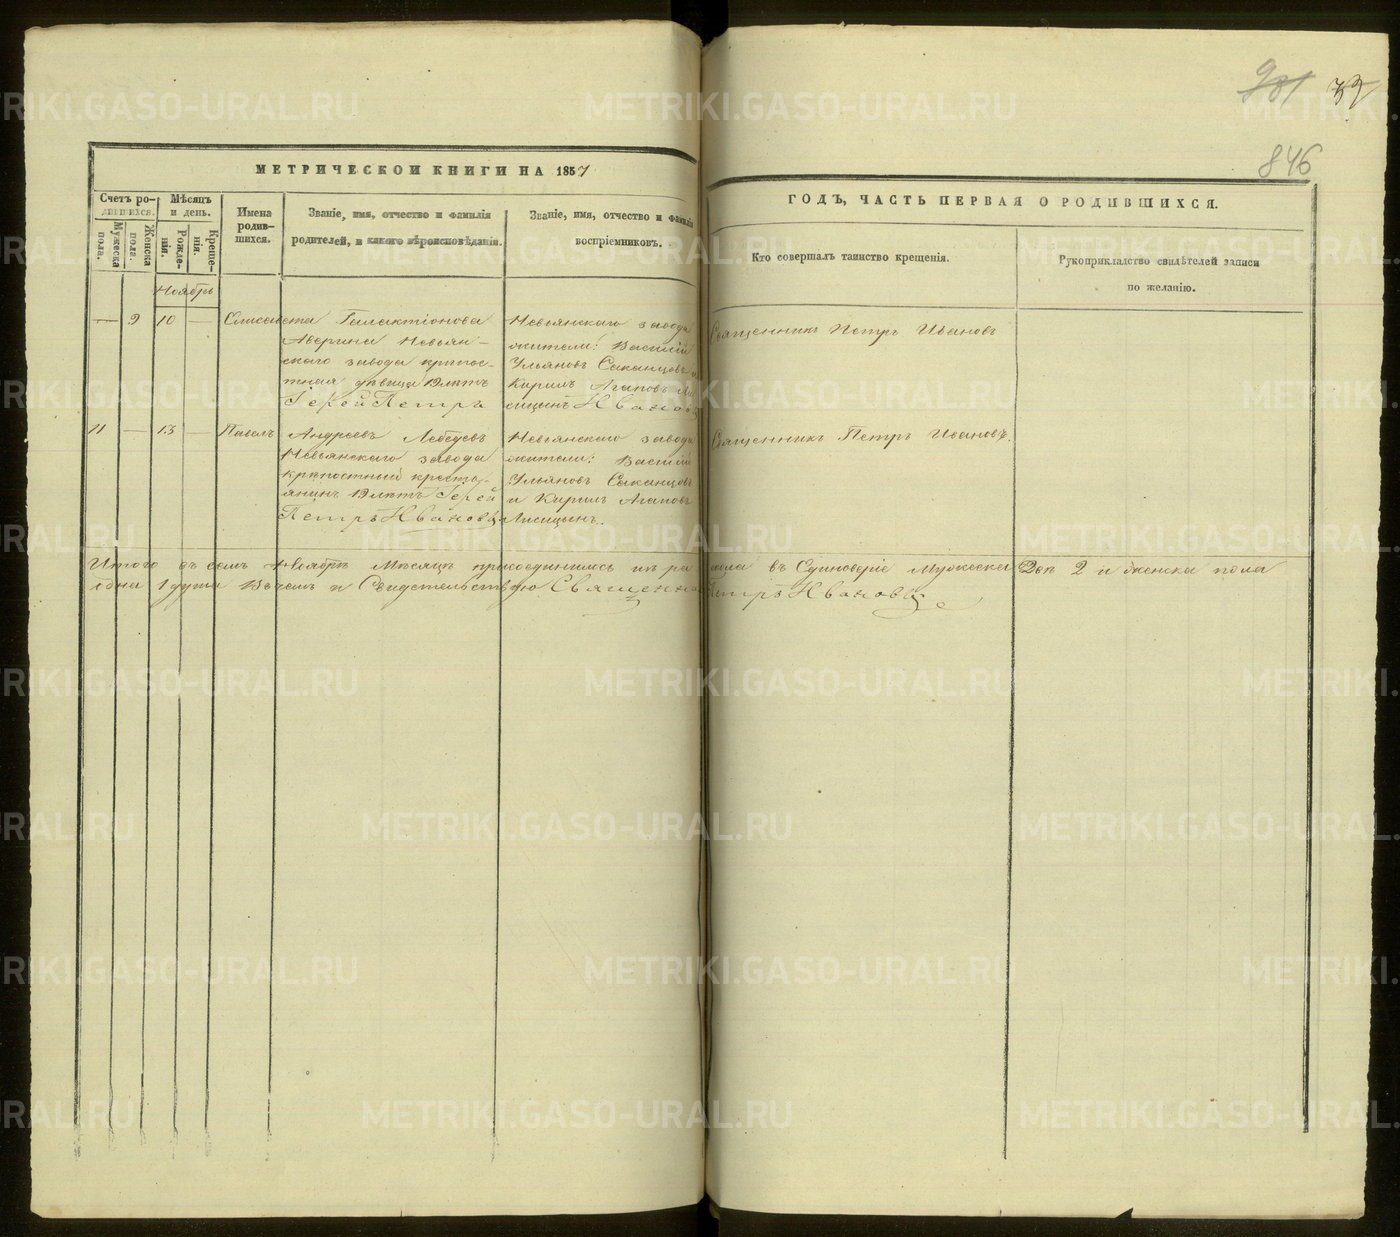 931 39
846
МЕТРИЧЕСКОЙ КНИГИ НА 1857
ГОДЪ, ЧАСТЬ ПЕРВАЯ О РОДИВШИХСЯ.
Счетъ родившихся.
Мужеска пола.
Женска пола.
Мѣсяцъ и день.
Рожденія.
Крещенія.
Имена родившихся.
Званіе, имя, отчество и фамилія родителей, и какого вѣроисповѣданія.
Званіе, имя, отчество и фамилія воспріемниковъ.
Кто совершалъ таинство крещенія.
Рукоприкладство свидѣтелей записи по желанію.
Ноябрь
— 9 10 — Елисавета Галактіонова
Аверина Невьян-
скаго завода крѣпос-
тная дѣвица 19 лѣтъ
Іерей Петръ
Невьянскаго завода
жители: Василій
Ульяновъ Саканцовъ и
Кирилъ Агаповъ Ли-
сицынъ Ивановъ
Священникъ Петръ Ивановъ
11 — 13 — Павелъ Андреевъ Лебедевъ
Невьянскаго завода
крѣпостный кресть-
янинъ 19 лѣтъ Іерей
Петръ Ивановъ
Невьянскаго завода
жители: Василій
Ульяновъ Саканцовъ
и Кирилъ Агаповъ
Лисицынъ.
Священникъ Петръ Ивановъ.
Итого въ семъ Ноябрѣ Мѣсяцѣ присоединилось изъ раскола въ Единовѣріе Мужеска 2 и женска пола
одна 1 душа Въ чемъ и Свидетельствую Священникъ Петръ Ивановъ
METRIKI.GASO-URAL.RU